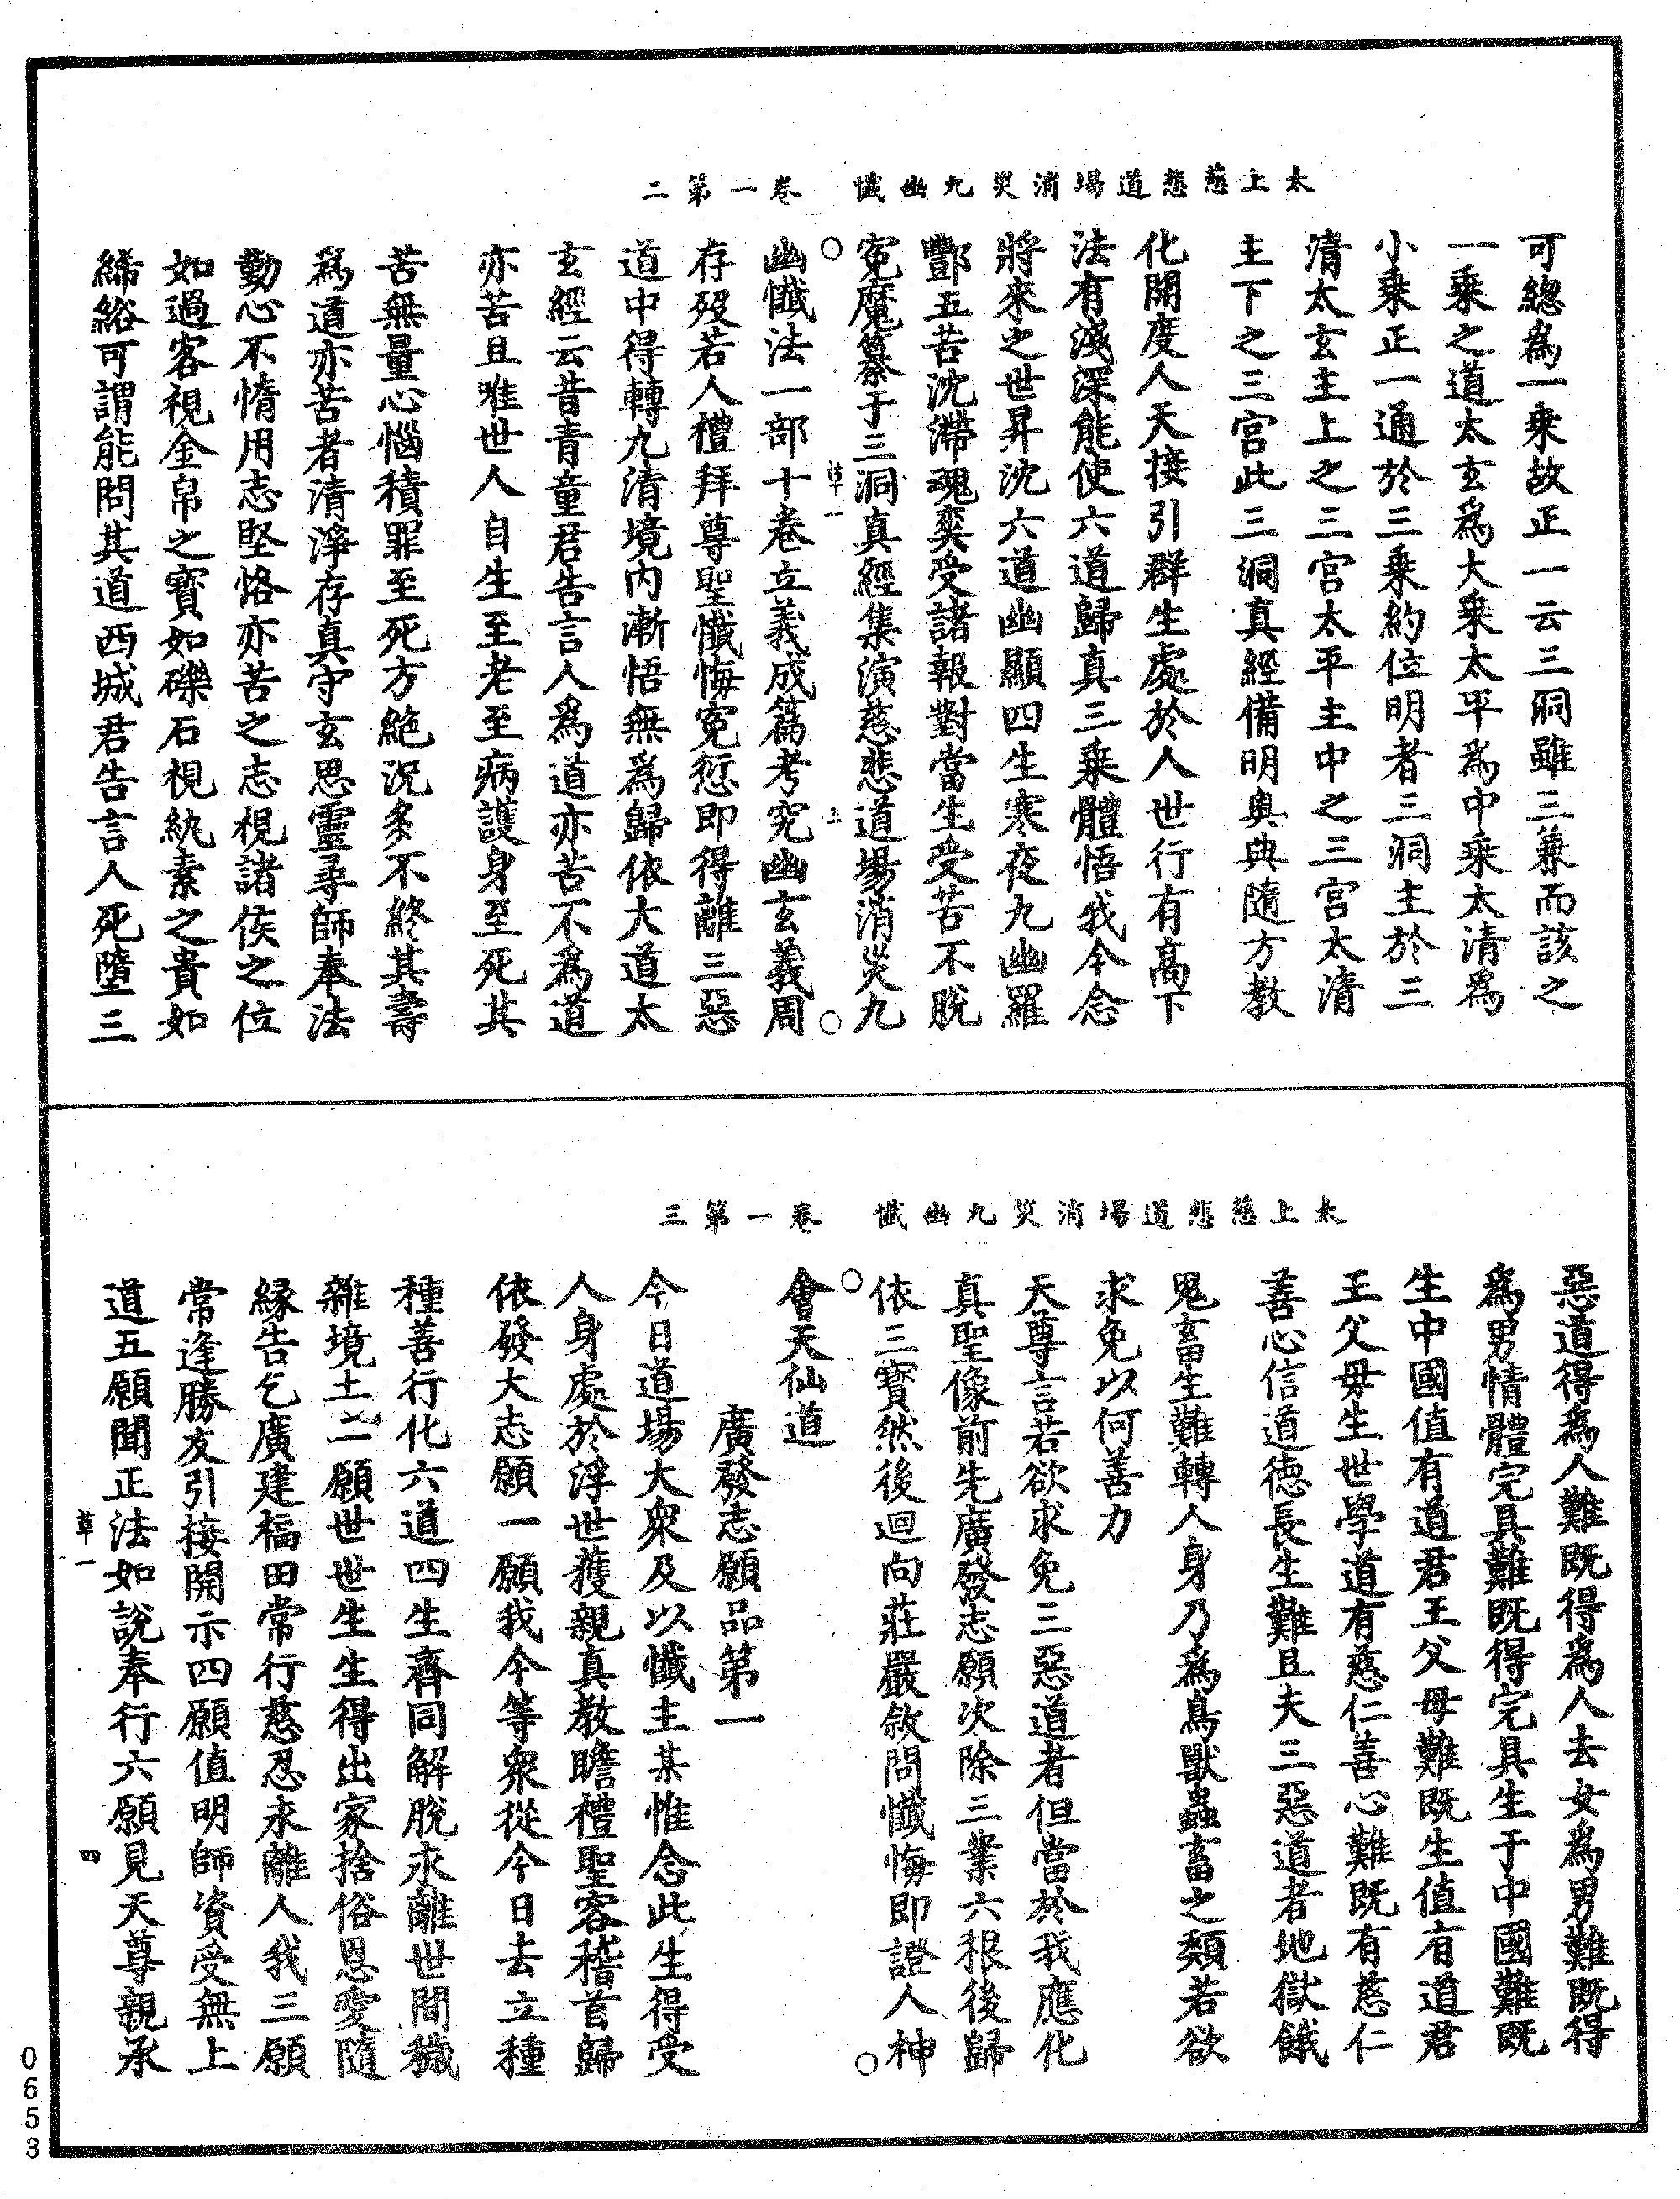 太上慈悲道場消災九幽懺　卷一第二
可總為一乘故正一云三洞雖三兼而該之
一乘之道太玄為大乘太平為中乘太清為
小乘正一通於三乘約位明者三洞主於三
清太玄主上之三宮太平主中之三宮太清
主下之三宮此三洞真經備明奥典隨方教
化開度人天接引群生處於人世行有高下
法有淺深能使六道歸真三乘體悟我今念
將來之世昇沈六道幽顯四生寒夜九幽羅
酆五苦沈滯魂爽受諸報對當生受苦不脫
冤魔纂于三洞真經集演慈悲道場消災九
草一　三
幽懺法一部十卷立義成篇考究幽玄義周
存歿若人禮拜尊聖懺悔冤愆即得離三惡
道中得轉九清境内漸悟無為歸依大道太
玄經云昔青童君告言人為道亦苦不為道
亦苦且唯世人自生至老至病護身至死其
苦無量心惱積罪至死方絶況多不終其壽
為道亦苦者清淨存真守玄思靈尋師奉法
勤心不惰用志堅恪亦苦之志視諸侯之位
如過客視金帛之寶如礫石視紈素之貴如
絺綌可謂能問其道西城君告言人死墮三
太上慈悲道場消災九幽懺　卷一第三
惡道得為人難既得為人去女為男難既得
為男情體完具難既得完具生于中國難既
生中國值有道君王父母難既生值有道君
王父母生世學道有慈仁善心難既有慈仁
善心信道德長生難且夫三惡道者地獄餓
鬼畜生難轉人身乃為鳥獸蟲畜之類若欲
求免以何善力
天尊言若欲求免三惡道者但當於我應化
真聖像前先廣發志願次除三業六根後歸
依三寶然後迴向莊嚴敘問懺悔即證人神
會天仙道
廣發志願品第一
今日道場大衆及以懺主某惟念此生得受
人身處於浮世獲親真教瞻禮聖容稽首歸
依發大志願一願我今等衆從今日去立種
種善行化六道四生齊同解脫永離世間穢
雜境土二願世世生生得出家捨俗恩愛隨
緣告乞廣建福田常行慈忍永離人我三願
常逢勝友引接開示四願值明師資受無上
道五願聞正法如說奉行六願見天尊親承
草一　四
0653